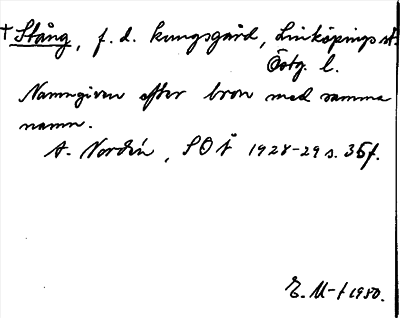 † Stång, f. d. kungsgård, Linköpings st.
Östg. l.
Namngiven efter bron med samma
namn.
A. Nordén, SOÅ 1928-29 s. 35f.
E. M-t 1980.